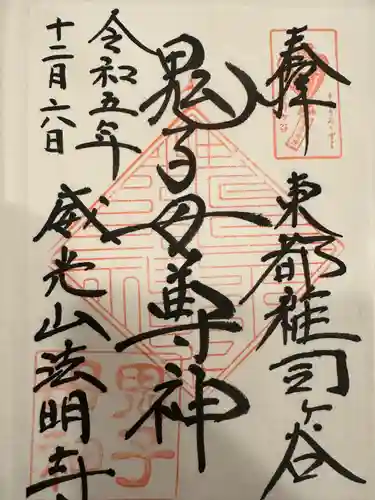 奉拝
東都雑司ヶ谷
鬼子母尊神
令和五年
十二月六日
威光山法明寺